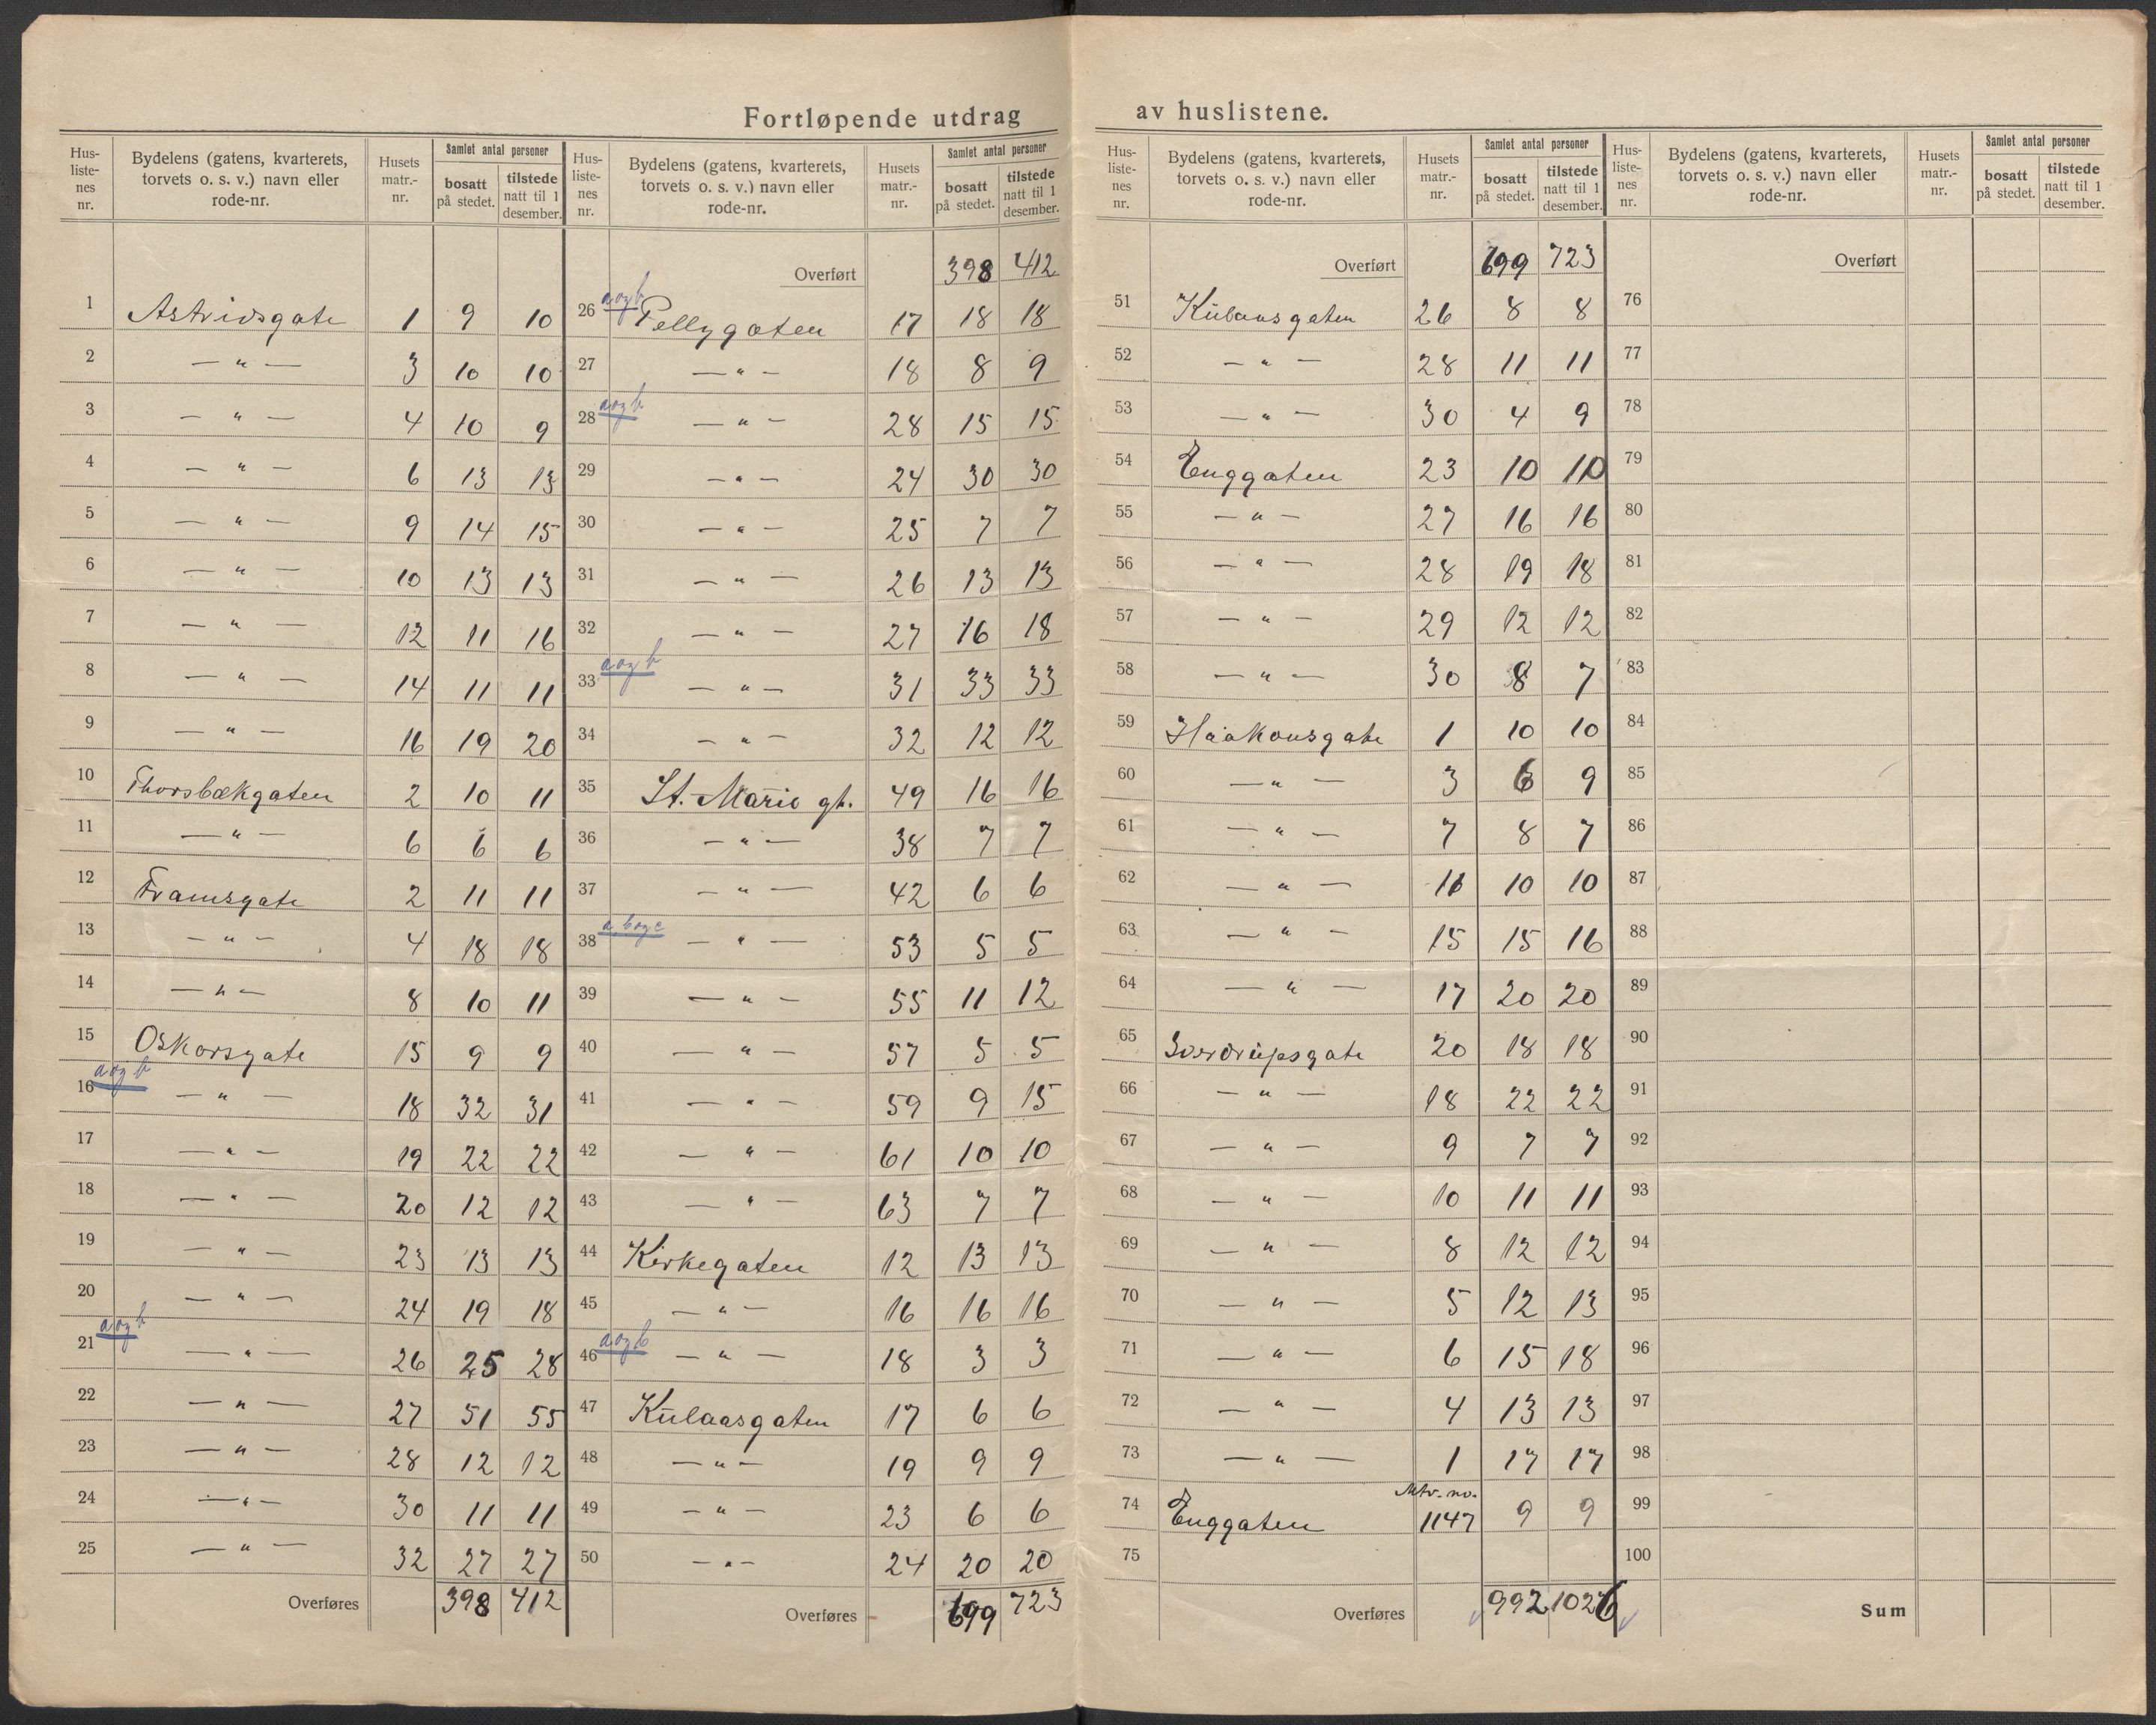 Fortløpende utdrag av huslistene.
Hus-listenes nr. | Bydelens (gatens, kvarterets, torvets o. s. v.) navn eller rode-nr. | Husets matr.-nr. | Samlet antal personer bosatt på stedet. | tilstede natt til 1 desember.
1 Astridsgate 1 9 10
2 — " — 3 10 10
3 — " — 4 10 9
4 — " — 6 13 13
5 — " — 9 14 15
6 — " — 10 13 13
7 — " — 12 11 16
8 — " — 14 11 11
9 — " — 16 19 20
10 Thorsbækgaten 2 10 11
11 — " — 6 6 6
12 Framsgate 2 11 11
13 — " — 4 18 18
14 — " — 8 10 11
15 Oskarsgate 15 9 9
16 a og b — " — 18 32 31
17 — " — 19 22 22
18 — " — 20 12 12
19 — " — 23 13 13
20 — " — 24 19 18
21 a og b — " — 26 25 28
22 — " — 27 51 55
23 — " — 28 12 12
24 — " — 30 11 11
25 — " — 32 27 27
Overføres 398 412
Hus-listenes nr. | Bydelens (gatens, kvarterets, torvets o. s. v.) navn eller rode-nr. | Husets matr.-nr. | Samlet antal personer bosatt på stedet. | tilstede natt til 1 desember.
Overført 398 412
26 a og b Pellygaten 17 18 18
27 — " — 18 8 9
28 a og b — " — 28 15 15
29 — " — 24 30 30
30 — " — 25 7 7
31 — " — 26 13 13
32 — " — 27 16 18
33 a og b — " — 31 33 33
34 — " — 32 12 12
35 St. Marie gt. 49 16 16
36 — " — 38 7 7
37 — " — 42 6 6
38 a b og c — " — 53 5 5
39 — " — 55 11 12
40 — " — 57 5 5
41 — " — 59 9 15
42 — " — 61 10 10
43 — " — 63 7 7
44 Kirkegaten 12 13 13
45 — " — 16 16 16
46 a og b — " — 18 3 3
47 Kulaasgaten 17 6 6
48 — " — 19 9 9
49 — " — 23 6 6
50 — " — 24 20 20
Overføres 699 723
Hus-listenes nr. | Bydelens (gatens, kvarterets, torvets o. s. v.) navn eller rode-nr. | Husets matr.-nr. | Samlet antal personer bosatt på stedet. | tilstede natt til 1 desember.
Overført 699 723
51 Kulaasgaten 26 8 8
52 — " — 28 11 11
53 — " — 30 4 9
54 Enggaten 23 10 10
55 — " — 27 16 16
56 — " — 28 19 18
57 — " — 29 12 12
58 — " — 30 8 7
59 Haakonsgate 1 10 10
60 — " — 3 6 9
61 — " — 7 8 7
62 — " — 11 10 10
63 — " — 15 15 16
64 — " — 17 20 20
65 Sverdrupsgate 20 18 18
66 — " — 18 22 22
67 — " — 9 7 7
68 — " — 10 11 11
69 — " — 8 12 12
70 — " — 5 12 13
71 — " — 6 15 18
72 — " — 4 13 13
73 — " — 1 17 17
74 Enggaten Mtr. no. 1147 9 9
75
Overføres 992 1026
Hus-listenes nr. | Bydelens (gatens, kvarterets, torvets o. s. v.) navn eller rode-nr. | Husets matr.-nr. | Samlet antal personer bosatt på stedet. | tilstede natt til 1 desember.
Overført
76
77
78
79
80
81
82
83
84
85
86
87
88
89
90
91
92
93
94
95
96
97
98
99
100
Sum